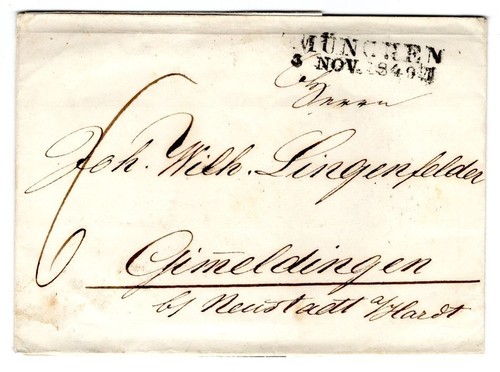 MÜNCHEN
3 NOV. 1849
Herrn
6
Joh. Wilh. Lingenfelder
Gim̄eldingen
b/ Neustadt a/Hardt